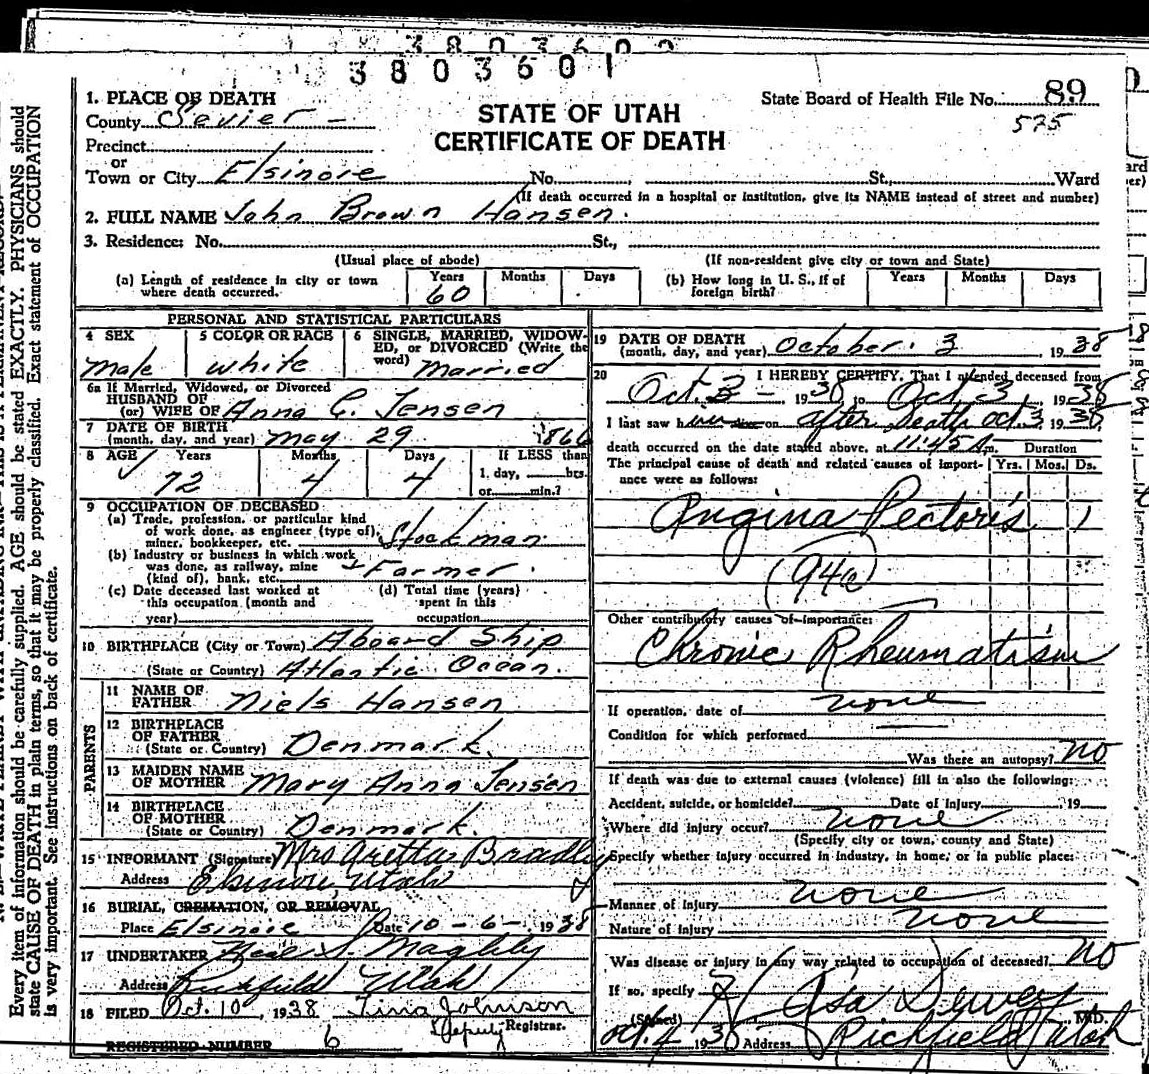 3803601
State Board of Health File No. 89
575
STATE OF UTAH
CERTIFICATE OF DEATH
1. PLACE OF DEATH
County Sevier
Precinct
or
Town or City Elsinore No. St., Ward
(If death occurred in a hospital or institution, give its NAME instead of street and number)
2. FULL NAME John Brown Hansen.
3. Residence: No. St.,
(Usual place of abode) (If non-resident give city or town and State)
(a) Length of residence in city or town where death occurred. Years 60 Months Days
(b) How long in U. S., if of foreign birth? Years Months Days
PERSONAL AND STATISTICAL PARTICULARS
4 SEX Male
5 COLOR OR RACE White
6 SINGLE, MARRIED, WIDOWED, or DIVORCED (Write the word) Married
6a If Married, Widowed, or Divorced
HUSBAND OF
(or) WIFE OF Anna C. Jensen
7 DATE OF BIRTH
(month, day, and year) May 29 1866
8 AGE Years 72 Months 4 Days 4 If LESS than 1. day, hrs. or min.?
9 OCCUPATION OF DECEASED
(a) Trade, profession, or particular kind of work done, as engineer (type of), miner, bookkeeper, etc. Stockman
(b) Industry or business in which work was done, as railway, mine (kind of), bank, etc. + Farmer.
(c) Date deceased last worked at this occupation (month and year)
(d) Total time (years) spent in this occupation
10 BIRTHPLACE (City or Town) Aboard Ship
(State or Country) Atlantic Ocean.
PARENTS
11 NAME OF FATHER Niels Hansen
12 BIRTHPLACE OF FATHER
(State or Country) Denmark.
13 MAIDEN NAME OF MOTHER Mary Anna Jensen
14 BIRTHPLACE OF MOTHER
(State or Country) Denmark.
15 INFORMANT (Signature) Mrs Gretta Bradley
Address Elsinore, Utah
16 BURIAL, CREMATION, OR REMOVAL
Place Elsinore Date 10-6-1938
17 UNDERTAKER Neal S. Magleby
Address Richfield Utah
18 FILED Oct. 10, 1938 Tina Johnson
Deputy Registrar.
REGISTERED NUMBER 6
19 DATE OF DEATH
(month, day, and year) October. 3 1938
20 I HEREBY CERTIFY, That I attended deceased from
Oct. 3 - 1938 to Oct 3, 1938
I last saw him alive on after Death Oct 3, 1938
death occurred on the date stated above, at 11:45 A.m. Duration
The principal cause of death and related causes of importance were as follows: Yrs. Mos. Ds.
Angina Pectoris 1
94a
Other contributory causes of importance:
Chronic Rheumatism
If operation, date of none
Condition for which performed
Was there an autopsy? no
If death was due to external causes (violence) fill in also the following:
Accident, suicide, or homicide? Date of injury 19
Where did injury occur? none
(Specify city or town, county and State)
Specify whether injury occurred in industry, in home, or in public place:
Manner of Injury none
Nature of Injury none
Was disease or injury in any way related to occupation of deceased? no
If so, specify
(Signed) Asa Dewey M.D.
Oct. 4 1938 Address Richfield Utah
Every item of information should be carefully supplied. AGE should be stated EXACTLY. PHYSICIANS should
state CAUSE OF DEATH in plain terms, so that it may be properly classified. Exact statement of OCCUPATION
is very important. See instructions on back of certificate.